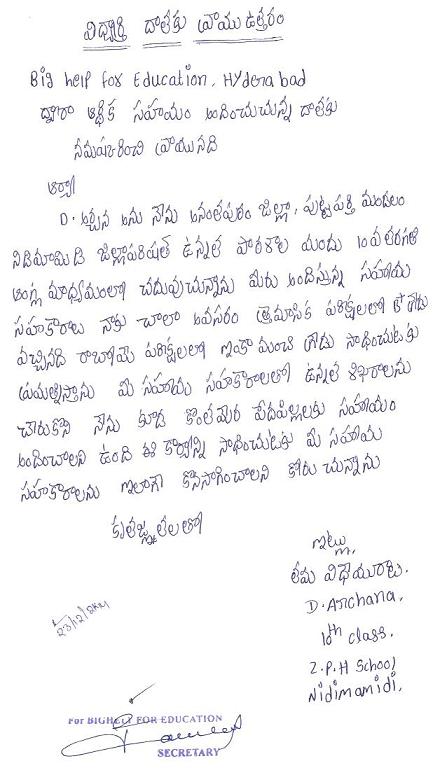 విద్యార్థి దాతకు వ్రాయు ఉత్తరం
Big help for Education, Hyderabad
ద్వారా ఆర్థిక సహాయం అందించుచున్న దాతకు
నమష్కరించి వ్రాయునది
ఆర్యా
D. అర్చన అను నేను అనంతపురం జిల్లా, పుట్టపర్తి మండలం
నిడిమామిడి జిల్లాపరిషత్ ఉన్నత పాఠశాల యందు 10వతరగతి
ఆంగ్ల మాధ్యమంలో చదువుచున్నాను మీరు అందిస్తున్న సహాయ
సహకారాలు నాకు చాలా అవసరం త్రైమాసిక పరిక్షలలో గ్రేడు
వచ్చినది రాబోయే పరిక్షలలో ఇంకా మంచి గ్రేడు సాధించుటకు
ప్రయత్నిస్తాను మీ సహాయ సహకారాలతో ఉన్నత శిఖరాలను
చేరుకొని నేను కూడ కొంతమైన పేదపిల్లలకు సహాయం
అందించాలని ఉంది ఈ కార్యాన్ని సాధించుటకు మీ సహాయ
సహకారాలను ఇలాగే కొనసాగించాలని కోరుచున్నాను
కృతజ్ఞతలతో
ఇట్లు
తమ విధేయురాలు.
D. Archana,
10th class.
Z.P.H School
Nidimamidi.
23/12/2014
For BIGHELP FOR EDUCATION
SECRETARY